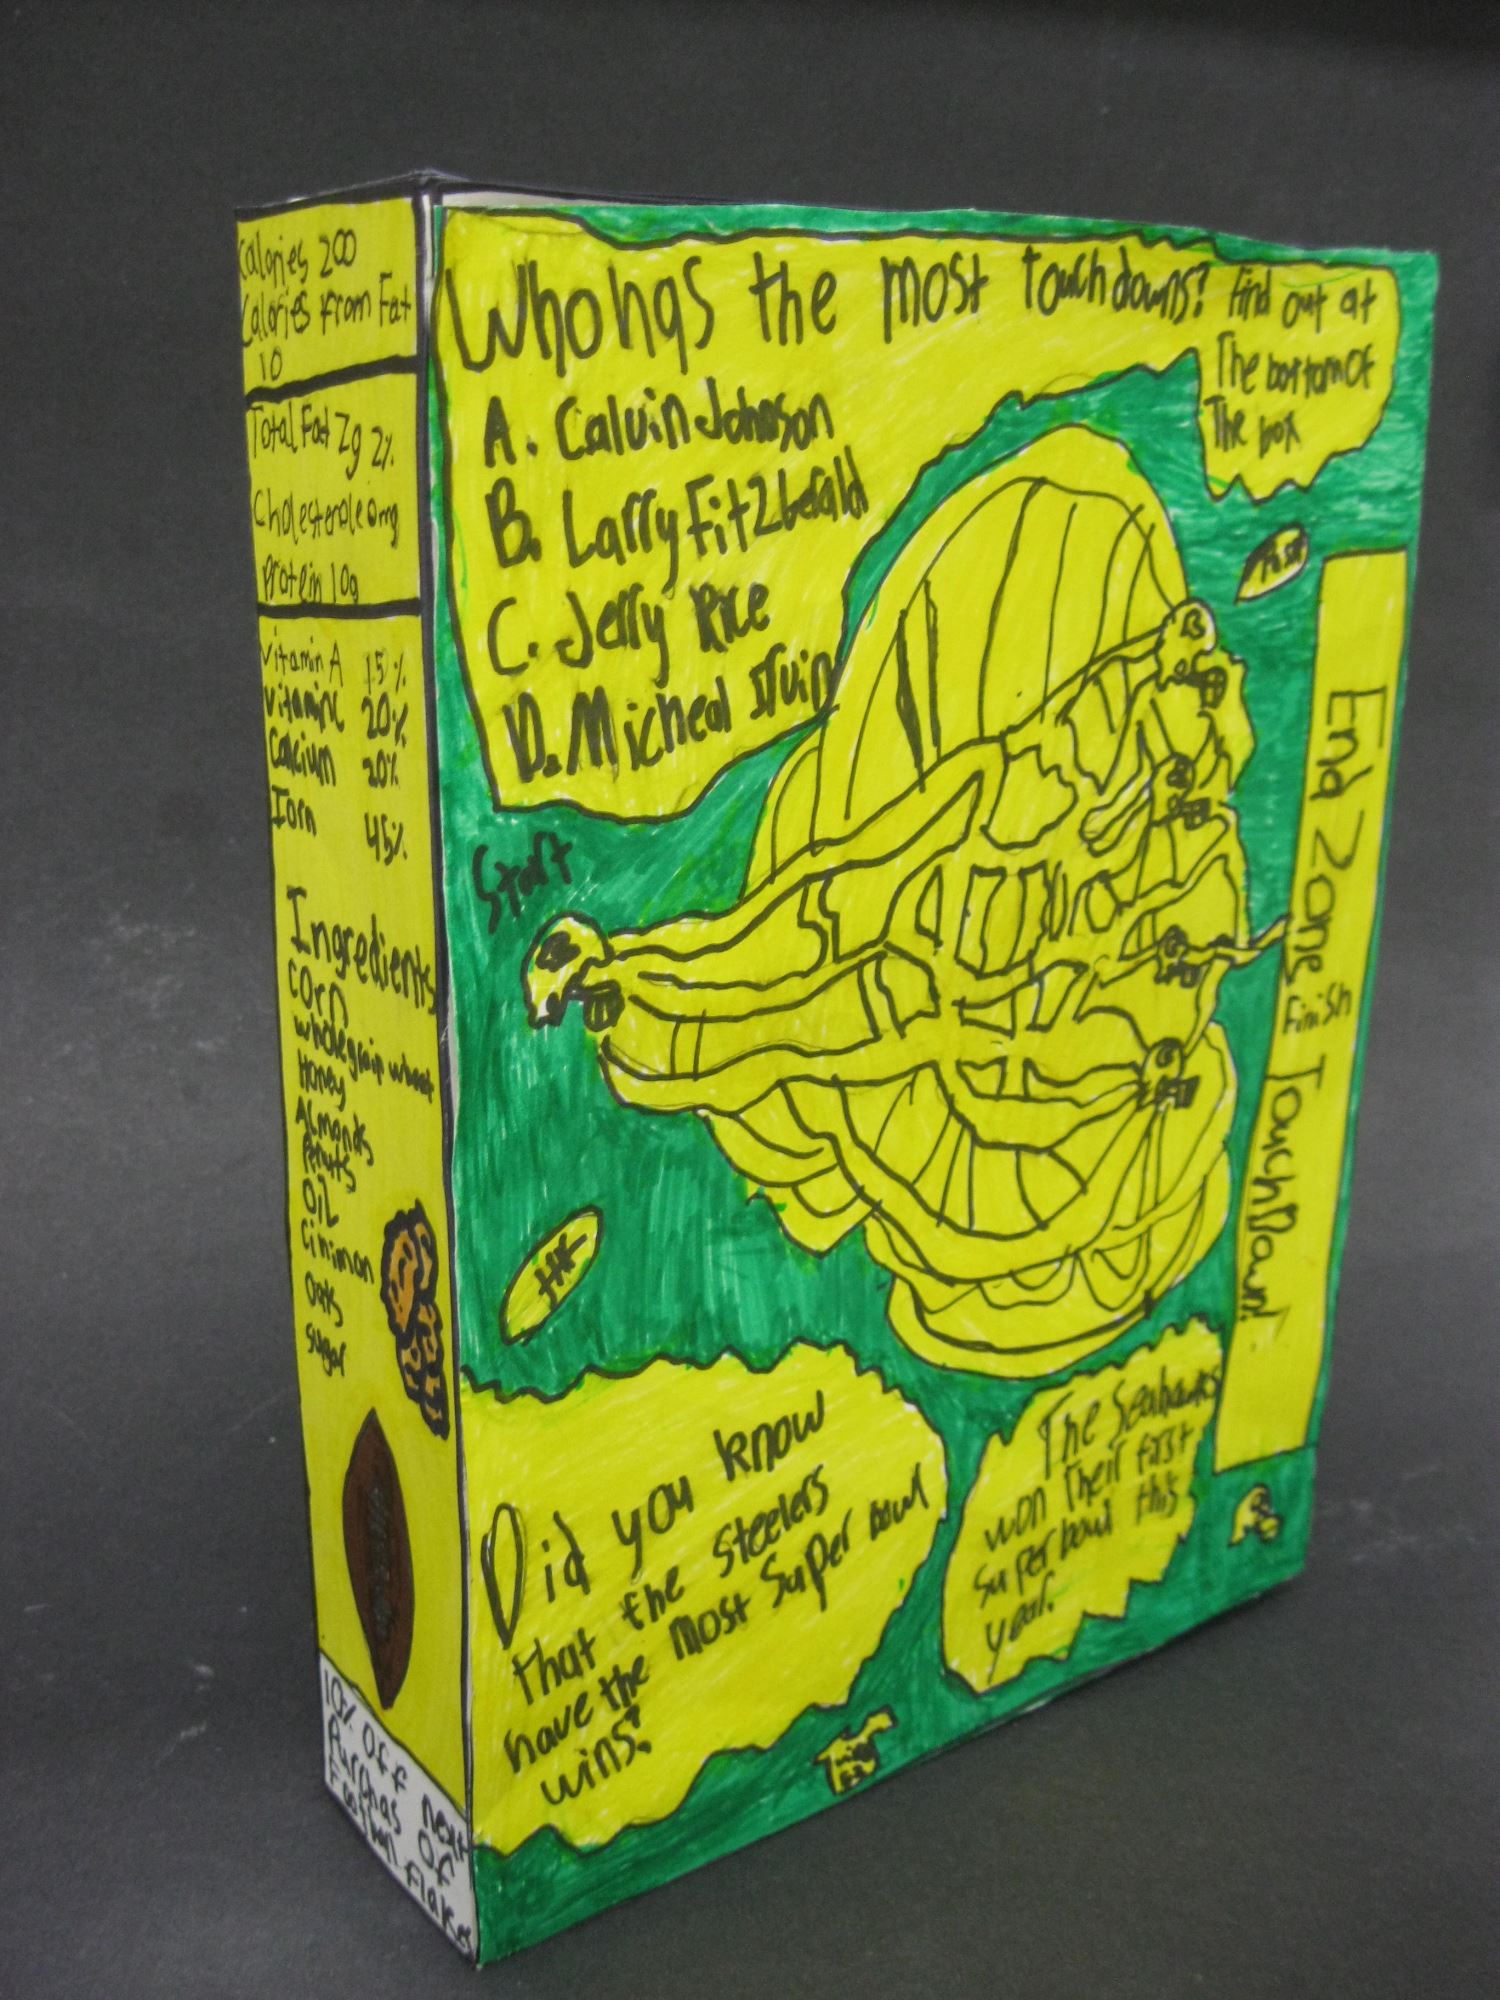 Calories 200
Calories from Fat
10
Total Fat 2g 2%
Cholesterole 0mg
Protein 10g
Vitamin A 15%
Vitamin C 20%
Calcium 20%
Iorn 45%
Ingredients
corn
whole grain wheat
Honey
Almonds
Penuts
Oil
Cinimon
Oats
sugar
10% off next
Purchas of
Football flakes
Who has the most touchdowns? Find out at
The bottom of
The box
A. Calvin Johnson
B. Larry Fitzgerald
C. Jerry Rice
D. Micheal Irvin
Start
End Zone Touch Down!
Finish
Did you know
that the steelers
have the most super bowl
wins?
The Seahawks
won their first
super bowl this
year.